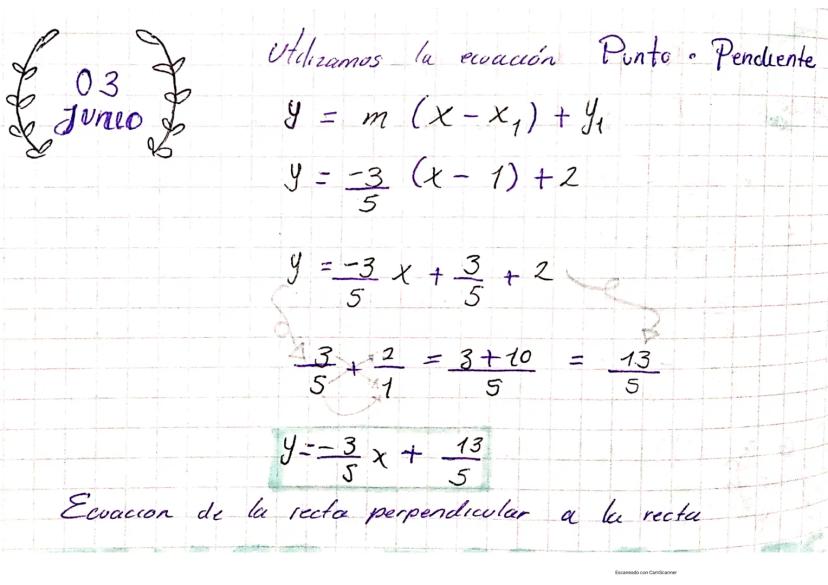 03
Junio
Utilizamos la ecuación Punto - Pendiente
y = m (x - x₁) + y₁
y = -3/5 (x - 1) + 2
y = -3/5 x + 3/5 + 2
3/5 + 2/1 = 3+10/5 = 13/5
y = -3/5 x + 13/5
Ecuacion de la recta perpendicular a la recta
Escaneado con CamScanner